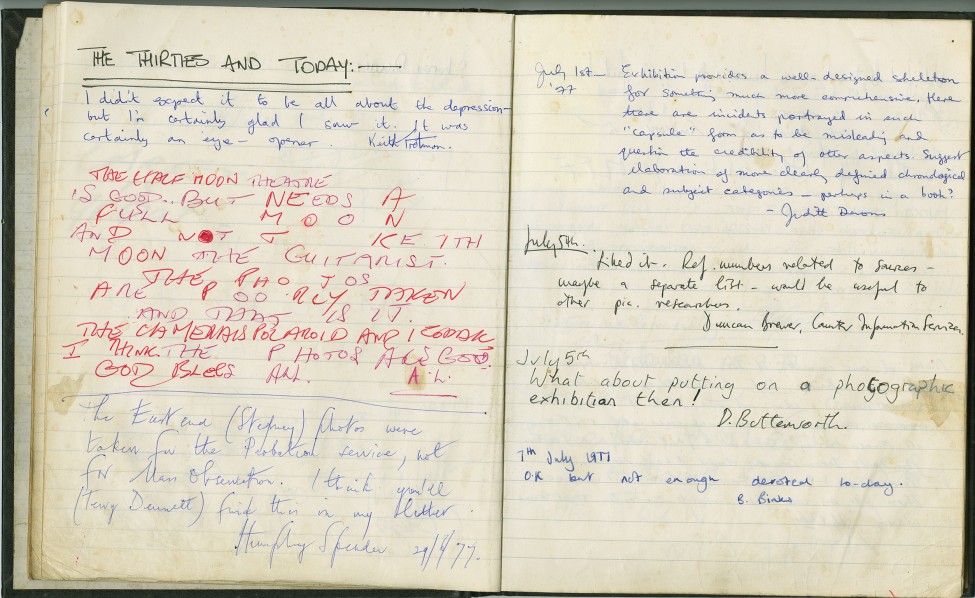 THE THIRTIES AND TODAY:—
I didn't expect it to be all about the depression—
but I'm certainly glad I saw it. It was
certainly an eye-opener. Keith
THE HALF MOON THEATRE
IS GOOD.. BUT NEEDS A
FULL MOON
AND NOT KEITH
MOON THE GUITARIST.
THE PHOTOS
ARE POORLY TAKEN
AND THAT IS IT.
THE CAMERA IS POLAROID AND KODAK
I THINK THE PHOTOS ARE GOOD.
GOD BLESS ALL. A.L.
The East end (Stepney) photos were
taken for the Probation service, not
for Mass Observation. I think you'll
(Terry Dennett) find this in my letter.
Humphrey Spender 29/6/77.
July 1st— Exhibition provides a well-designed skeleton
'77 for something much more comprehensive. Here
there are incidents portrayed in such
"capsule" form as to be misleading and
question the credibility of other aspects. Suggest
elaboration of more clearly defined chronological
and subject categories — perhaps in a book?
- Judith
July 5th.
Liked it. Ref. numbers related to sources –
maybe a separate list – would be useful to
other pic. researchers.
Duncan Brewer, Counter Information Services.
July 5th
What about putting on a photographic
exhibition then!
D. Butterworth.
7th July 1977
OK but not enough devoted to-day.
B. Binks